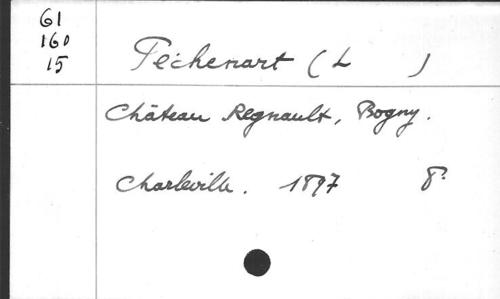 61
160
15
Péchenart (L )
Château Regnault, Bogny.
Charleville. 1897 8°